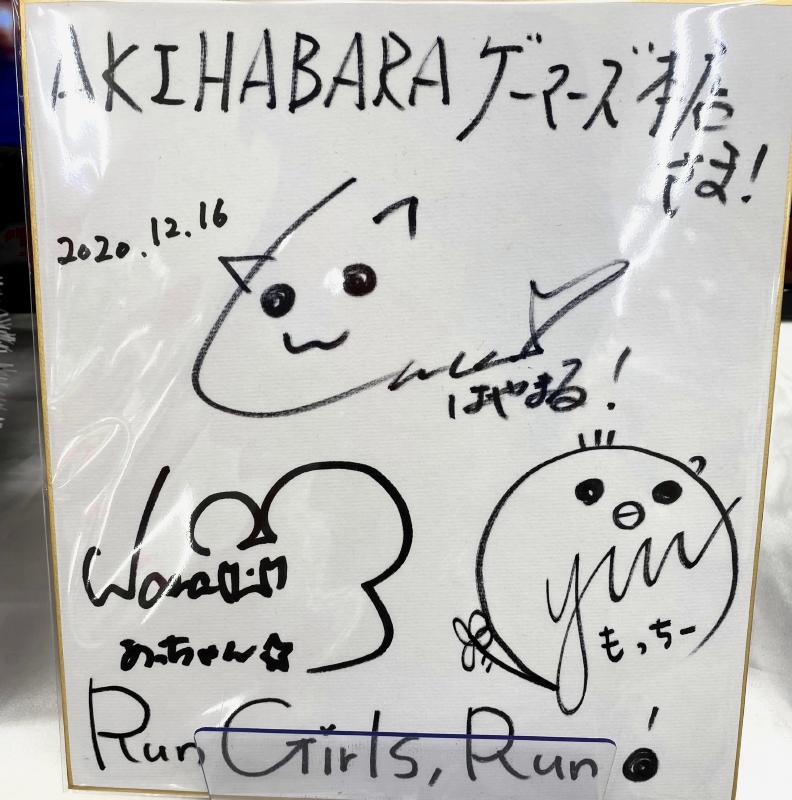 AKIHABARA ゲーマーズ本店
さま!
2020.12.16
はやまる!
Wora
あっちゃん☆
yuu
もっちー
Run Girls, Run!